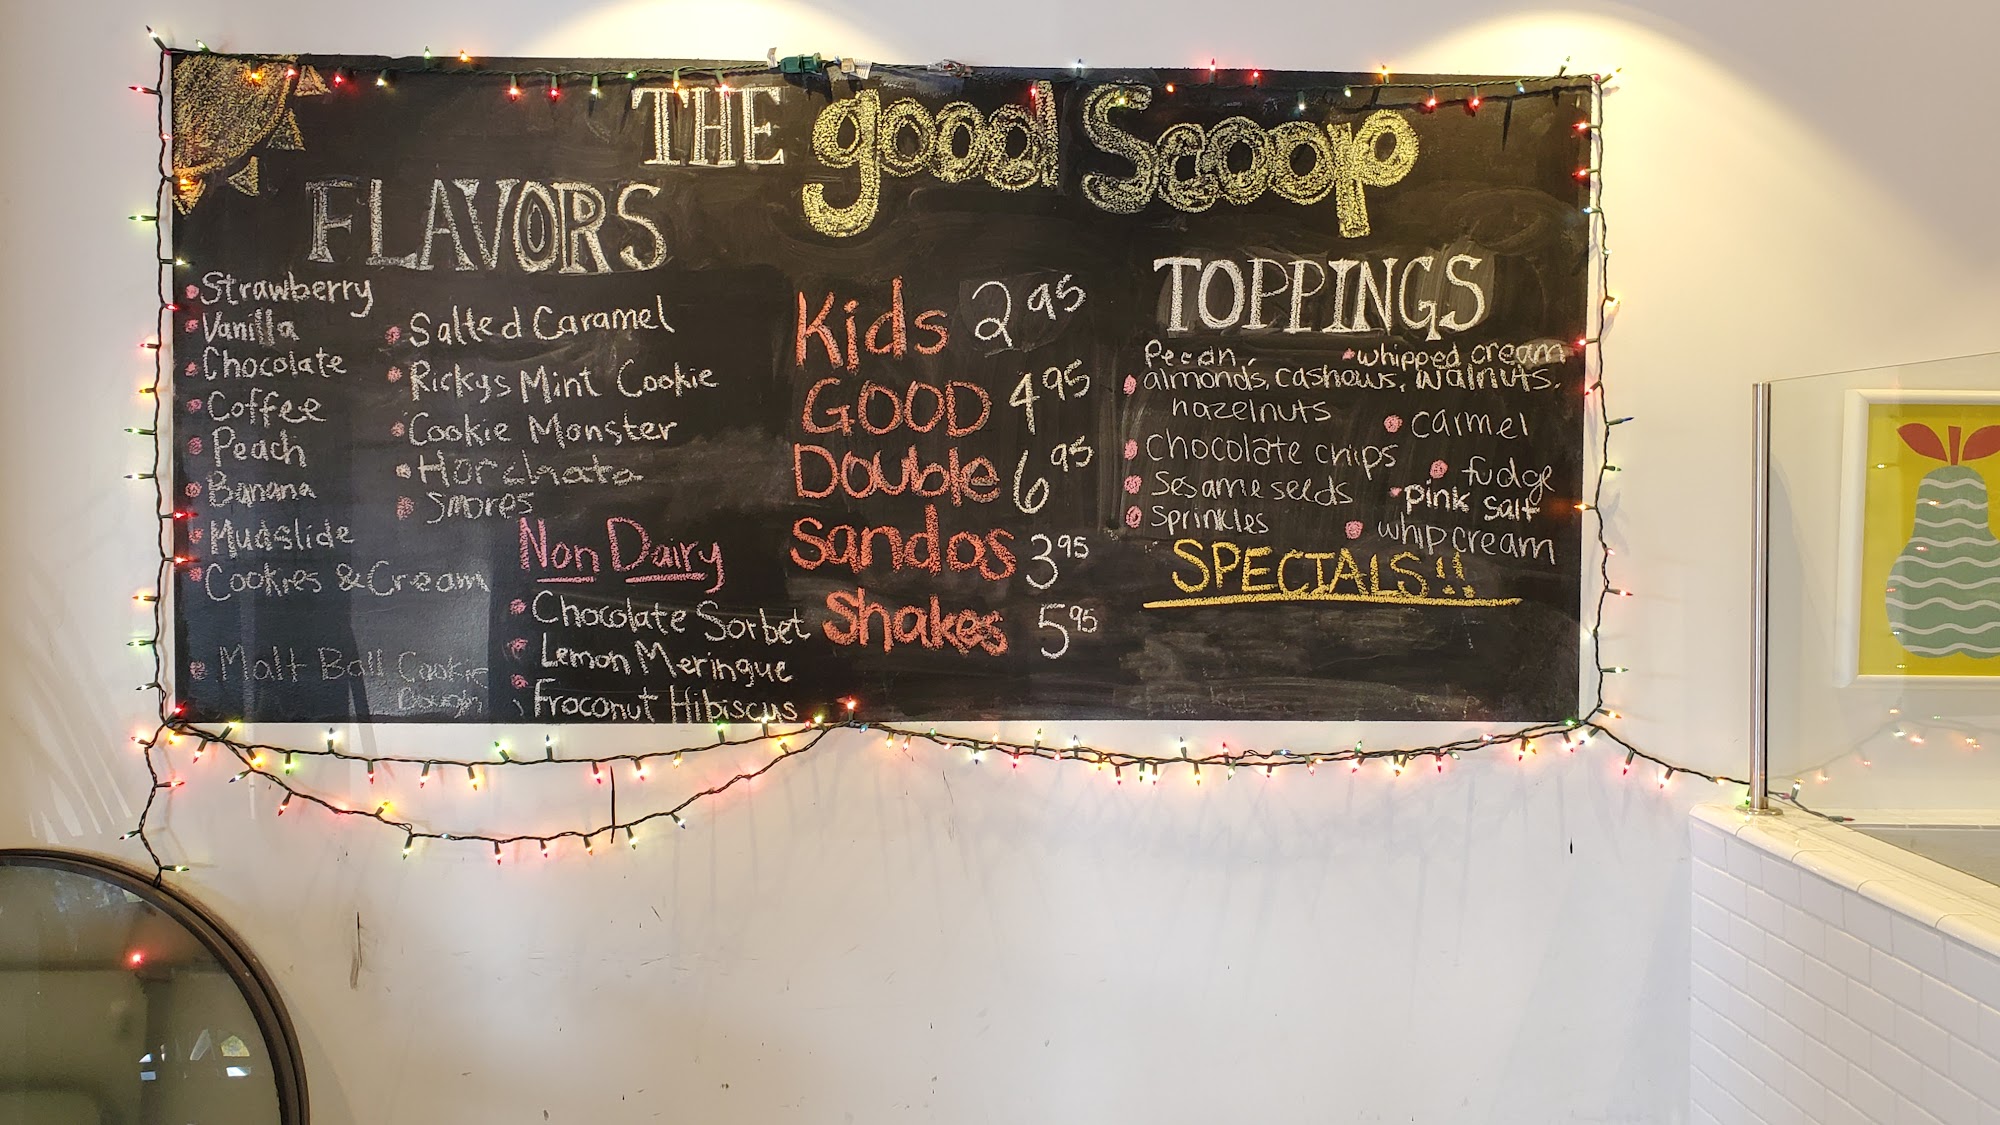 THE good Scoop
FLAVORS
Strawberry
Vanilla
Chocolate
Coffee
Peach
Banana
Mudslide
Cookies & Cream
Malt Ball Cookie
Dough
Salted Caramel
Rickys Mint Cookie
Cookie Monster
Horchata
Smores
Non Dairy
Chocolate Sorbet
Lemon Meringue
Froconut Hibiscus
Kids 2 95
GOOD 4 95
Double 6 95
Sandos 3 95
Shakes 5 95
TOPPINGS
Pecan,
almonds, cashows, walnuts.
hazelnuts
chocolate chips
sesame seeds
Sprinkles
whipped cream
carmel
fudge
pink salt
whip cream
SPECIALS!!